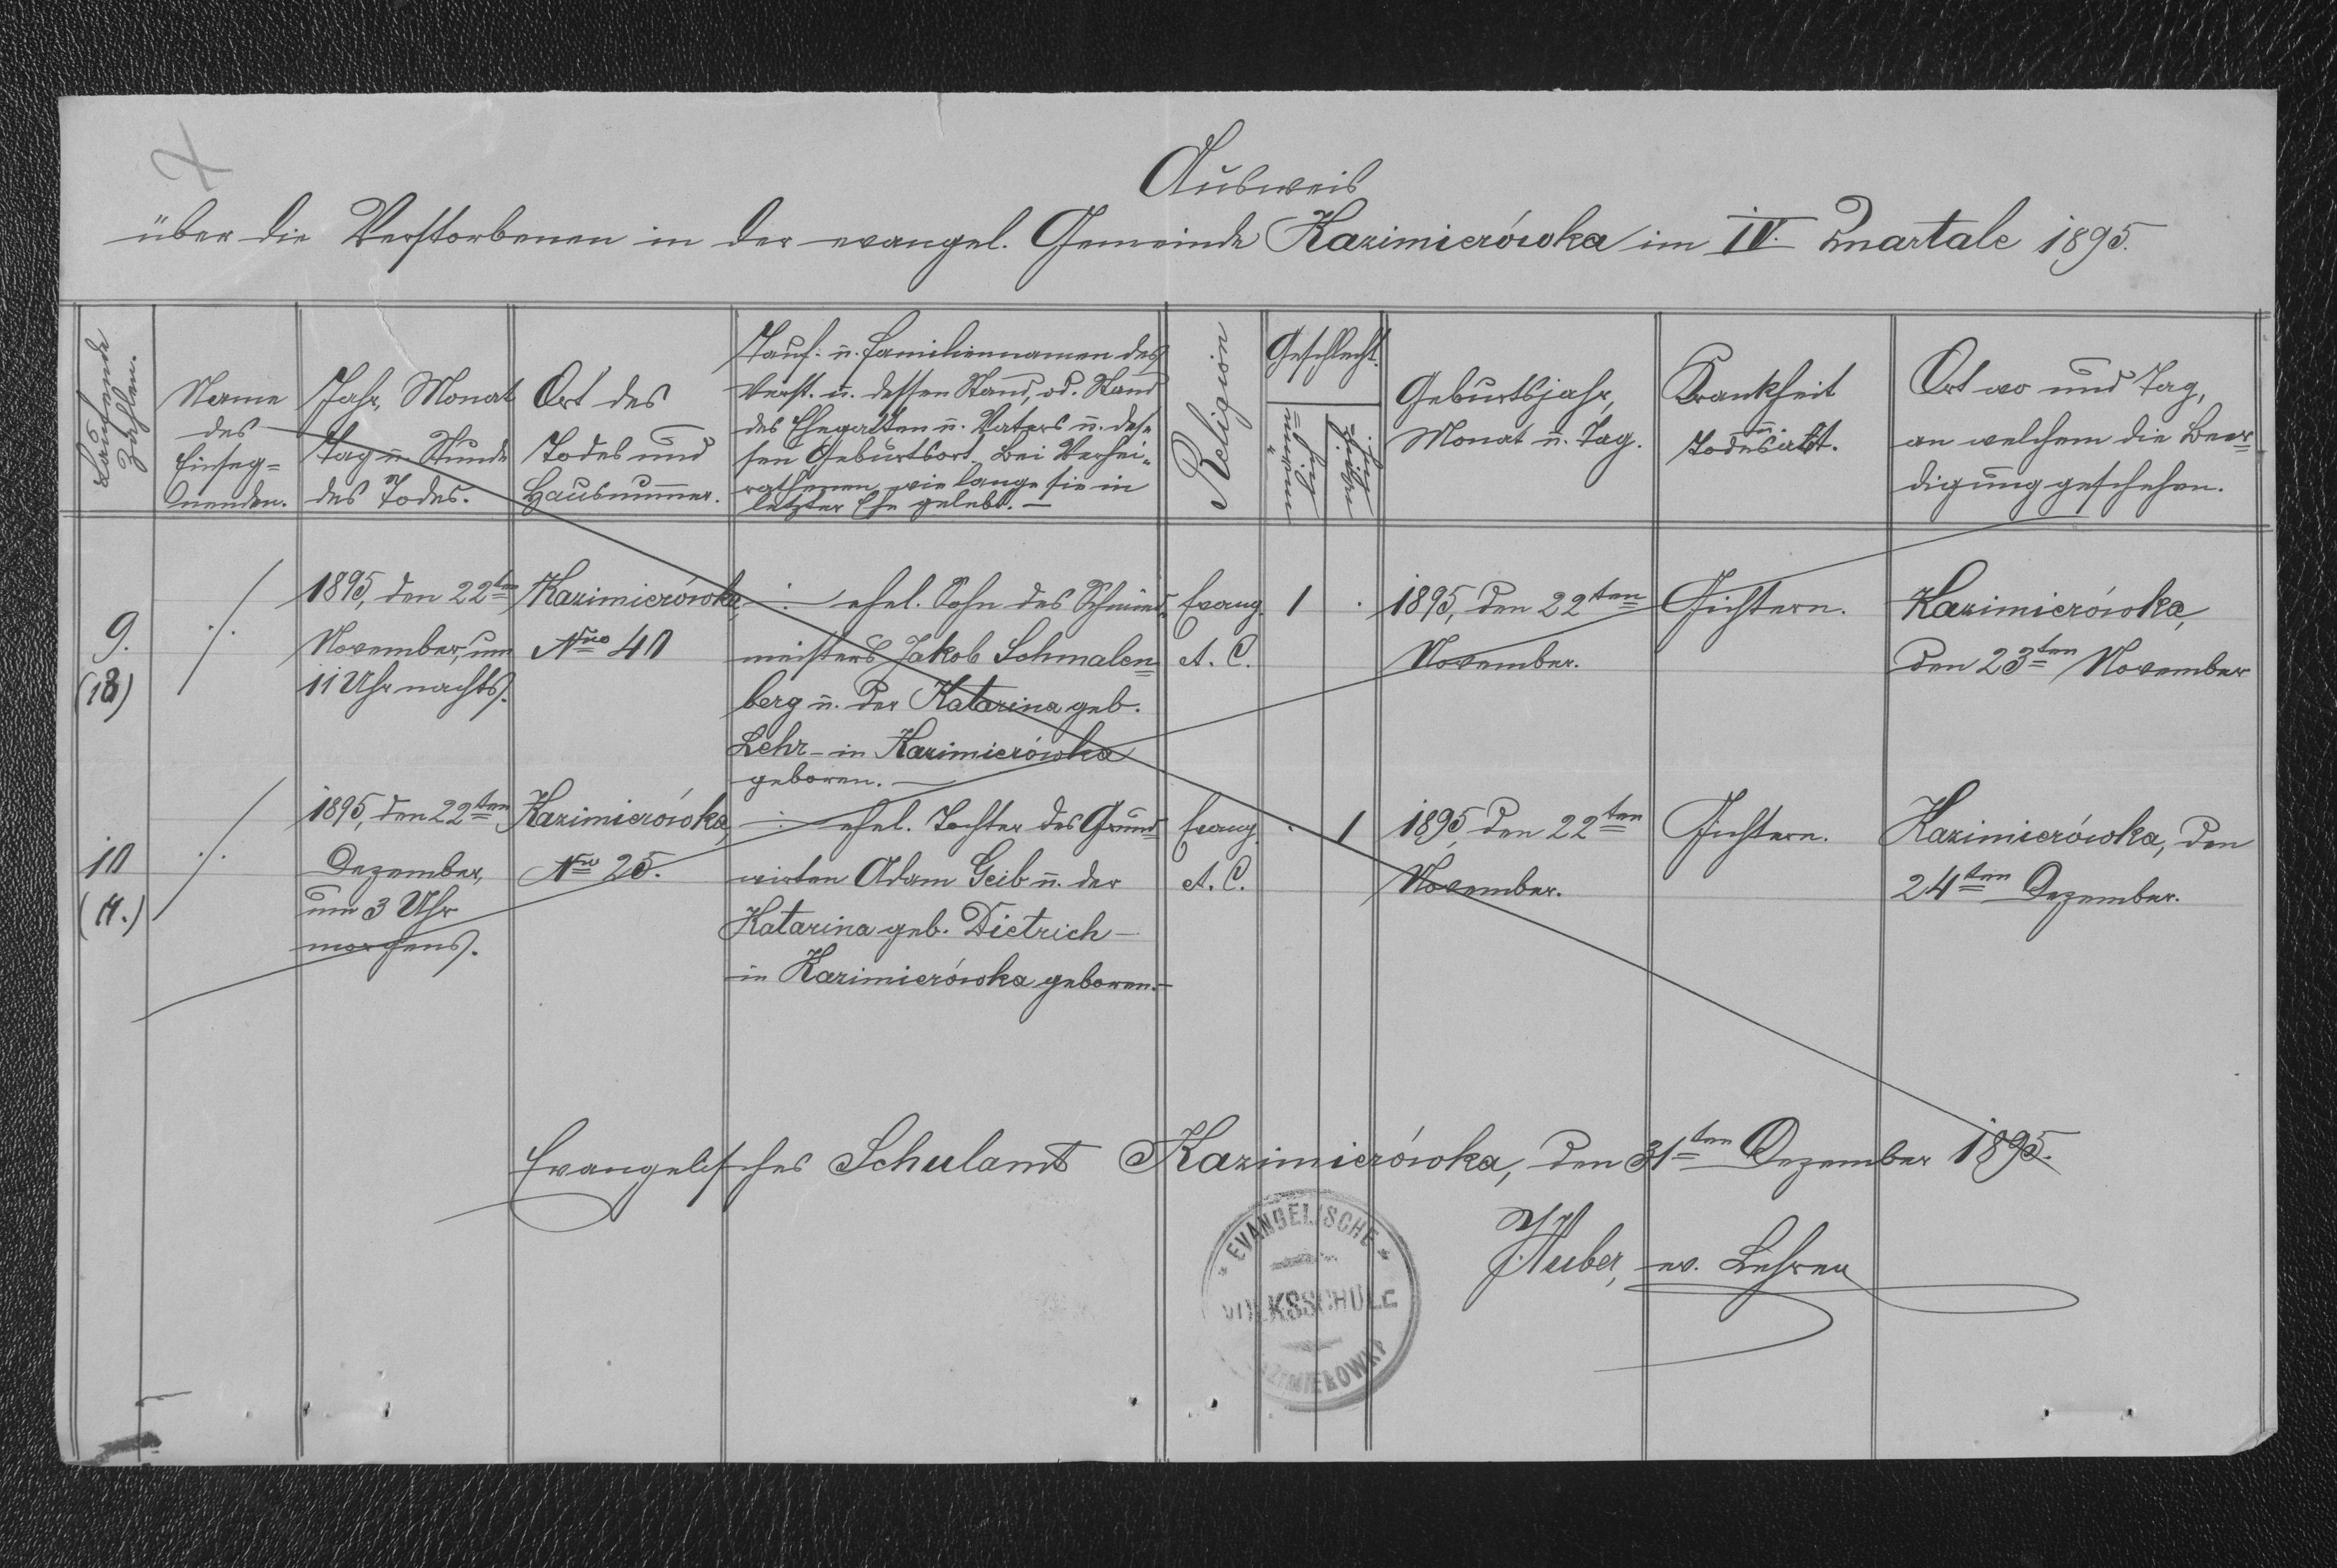 Ausweis
über die Verstorbenen in der evangel. Gemeinde Kazimierówka im IV. Quartale 1895.
Laufende Zahlen.
Name
des
Einseg=
nenden.
Jahr, Monat
Tag u. Stunde
des Todes.
Ort des
Todes und
Hausnummer.
Tauf= u. Familiennamen des
Verst. u. dessen Stand, od. Stand
des Ehegatten u. Vaters u. des=
sen Geburtsort. Bei Verhei=
rathenen, wie lange sie in
letzter Ehe gelebt. —
Religion
Geschlecht.
männ=
lich
weib=
lich
Geburtsjahr,
Monat u. Tag.
Krankheit
u.
Todesart.
Ort wo und Tag,
an welchem die Beer=
digung geschehen.
9.
(18)
./.
1895, den 22ten
November, um
11 Uhr nachts.
Kazimierówka,
Nro 40
—:— ehel. Sohn des Schmied=
meisters Jakob Schmalen=
berg u. der Katarina geb.
Lehr – in Kazimierówka
geboren. —
Evang.
A. C.
1 .
1895, den 22ten
November.
Gichtern.
Kazimierówka,
den 23ten November
10
./.
1895, den 22ten
Dezember,
um 3 Uhr
morgens.
Kazimierówka,
Nro 25.
—:— ehel. Tochter des Grund=
wirten Adam Geib u. der
Katarina geb. Dietrich –
in Kazimierówka geboren. –
Evang.
A. C.
. 1
1895, den 22ten
November.
Gichtern.
Kazimierówka, den
24ten Dezember.
Evangelisches Schulamt Kazimierówka, den 31ten Dezember 1895.
J. Huber, ev. Lehrer
EVANGELISCHE
VOLKSSCHULE